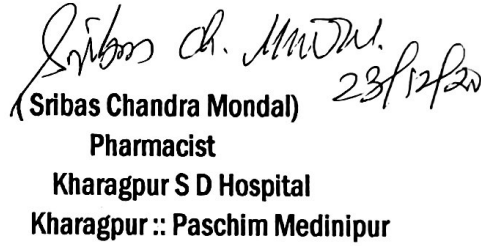 Sribas Ch. Mondal.
23/12/20
(Sribas Chandra Mondal)
Pharmacist
Kharagpur S D Hospital
Kharagpur :: Paschim Medinipur